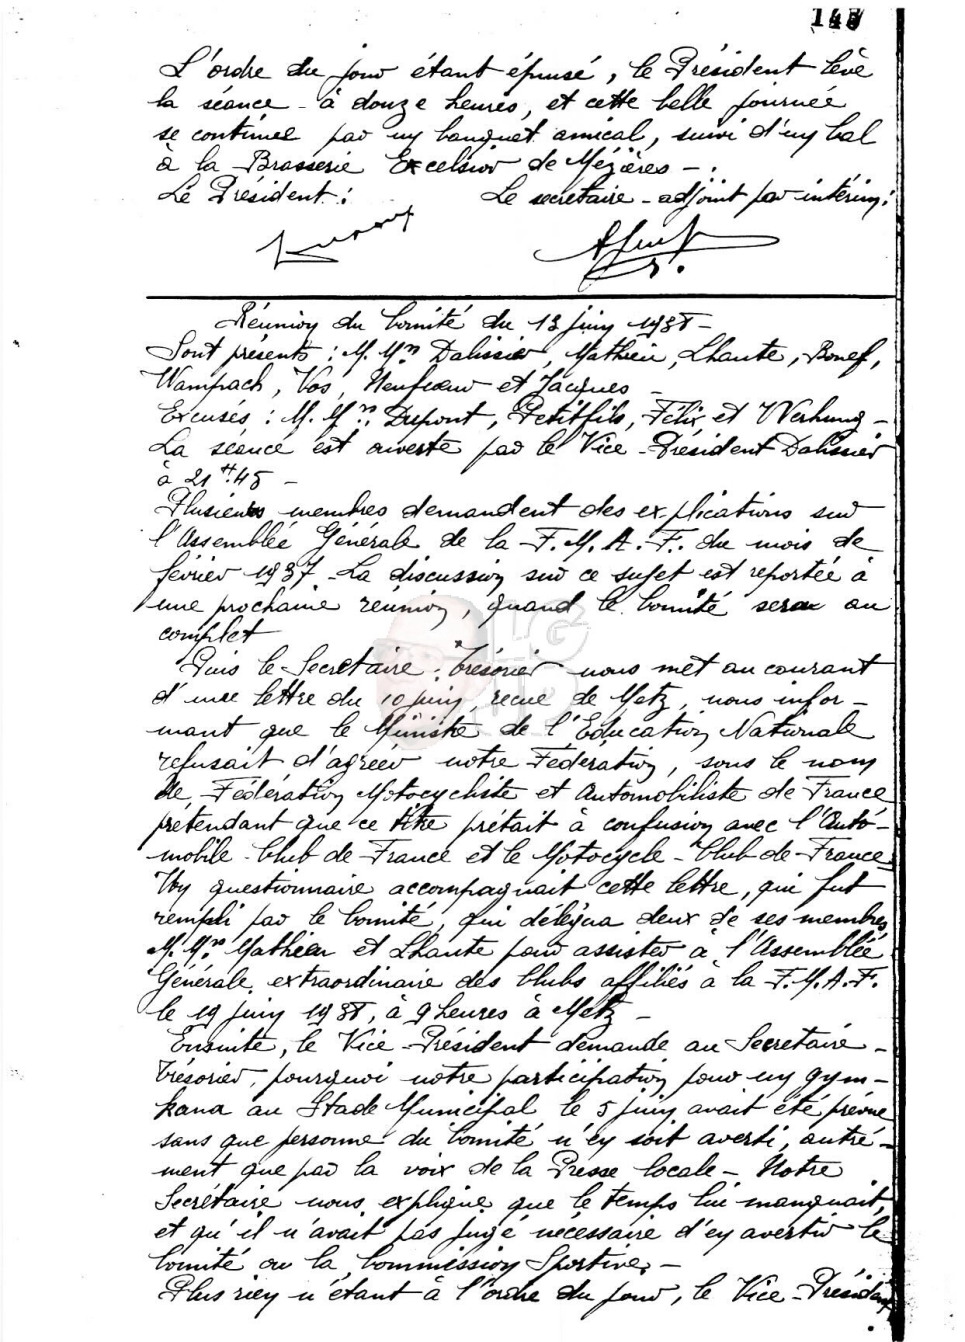 L'ordre du jour étant épuisé, le Président lève
la séance - à douze heures, et cette belle journée
se continue par un banquet amical, suivi d'un bal
à la Brasserie Excelsior de Mézières - .
Le Président : Le secrétaire - adjoint par intérim :
Réunion du Comité du 13 juin 1938 -
Sont présents : M. Mrs Dalissier, Mathieu, Lhaute, Bonef,
Wampach, Vos, Neufcoeur et Jacques -
Excusés : M. Mrs Dupont, Petitfils, Félix et Werhung -
La séance est ouverte par le Vice - Président Dalissier
à 21 H. 45 -
Plusieurs membres demandent des explications sur
l'Assemblée Générale de la F. M. A. F. du mois de
février 1937 - La discussion sur ce sujet est reportée à
une prochaine réunion, quand le Comité sera au
complet
Puis le Secrétaire - Trésorier nous met au courant
d'une lettre du 10 juin, reçue de Metz, nous infor -
mant que le Ministre de l'Education Nationale
refusait d'agréer notre Fédération, sous le nom
de Fédération Motocycliste et Automobiliste de France
prétendant que ce titre prêtait à confusion avec l'Auto -
mobile - Club de France et le Motocycle - Club - de - France
Un questionnaire accompagnait cette lettre, qui fut
rempli par le Comité, qui délégua deux de ses membres
M. Mrs Mathieu et Lhaute pour assister à l'Assemblée
Générale extraordinaire des Clubs affiliés à la F. M. A. F.
le 19 juin 1938, à 9 heures à Metz -
Ensuite, le Vice - Président demande au Secrétaire -
Trésorier, pourquoi notre participation pour un gym -
kana au Stade Municipal le 5 juin avait été prévue
sans que personne du Comité n'en soit averti, autre -
ment que par la voix de la Presse locale - Notre
Secrétaire nous explique que le temps lui manquait,
et qu'il n'avait pas jugé nécessaire d'en avertir le
Comité ou la Commission Sportive. -
Plus rien n'étant à l'ordre du jour, le Vice - Président